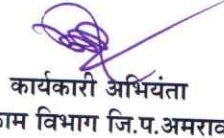 कार्यकारी अभियंता
काम विभाग जि.प.अमरा